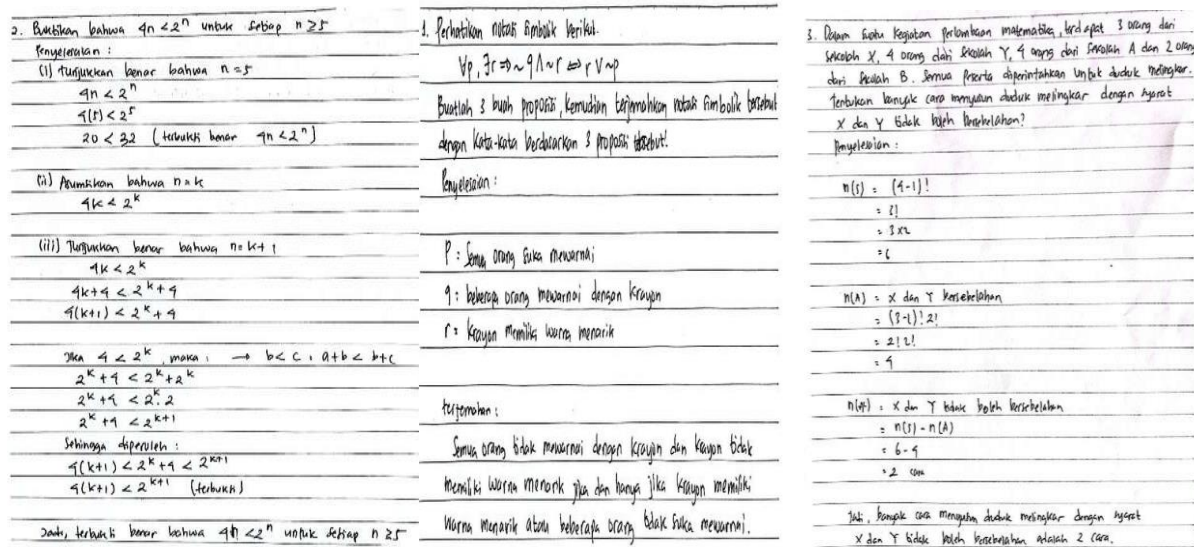 2. Buktikan bahwa 4n < 2ⁿ untuk setiap n ≥ 5
Penyelesaian :
(i) tunjukkan benar bahwa n = 5
4n < 2ⁿ
4(5) < 2⁵
20 < 32 (terbukti benar 4n < 2ⁿ)
(ii) Asumsikan bahwa n = k
4k < 2ᵏ
(iii) Tunjukkan benar bahwa n = k + 1
4k < 2ᵏ
4k+4 < 2ᵏ + 4
4(k+1) < 2ᵏ + 4
Jika 4 < 2ᵏ, maka : → b < c , a+b < b+c
2ᵏ + 4 < 2ᵏ + 2ᵏ
2ᵏ + 4 < 2ᵏ . 2
2ᵏ + 4 < 2ᵏ⁺¹
Sehingga diperoleh :
4(k+1) < 2ᵏ + 4 < 2ᵏ⁺¹
4(k+1) < 2ᵏ⁺¹ (terbukti)
Jadi, terbukti benar bahwa 4n < 2ⁿ untuk setiap n ≥ 5
1. Perhatikan notasi simbolik berikut.
∀p, ∃r ⇒ ~q ∧ ~r ⇔ r ∨ ~p
Buatlah 3 buah proposisi, kemudian terjemahkan notasi simbolik tersebut
dengan kata-kata berdasarkan 3 proposisi tersebut!
Penyelesaian :
P : Semua orang suka mewarnai
q : beberapa orang mewarnai dengan krayon
r : krayon memiliki warna menarik
terjemahan :
Semua orang tidak mewarnai dengan krayon dan krayon tidak
memiliki warna menarik jika dan hanya jika krayon memiliki
warna menarik atau beberapa orang tidak suka mewarnai.
3. Dalam suatu kegiatan perlombaan matematika, terdapat 3 orang dari
sekolah X, 4 orang dari sekolah Y, 4 orang dari sekolah A dan 2 orang
dari sekolah B. Semua peserta diperintahkan untuk duduk melingkar.
Tentukan banyak cara menyusun duduk melingkar dengan syarat
X dan Y tidak boleh bersebelahan?
Penyelesaian :
n(s) = (4-1)!
= 3!
= 3 x 2
= 6
n(A) = X dan Y bersebelahan
= (3-1)! 2!
= 2! 2!
= 4
X dan Y tidak boleh bersebelahan
= n(s) - n(A)
= 6 - 4
= 2 cara
Jadi, banyak cara menyusun duduk melingkar dengan syarat
X dan Y tidak boleh bersebelahan adalah 2 cara.